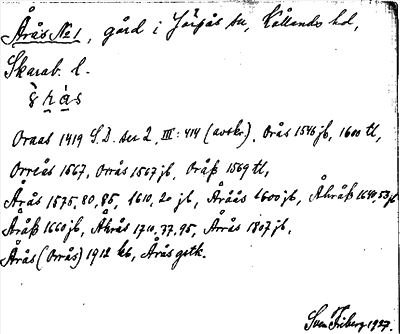 Årås No 1, gård i Särgås sn, Kållands hd,
Skarab. l.
Oraas 1419 S.D. ser 2, III: 414 (avskr.), Orås 1546 jb, 1600 tl,
Orreås 1567, Orrås 1567 jb, Oråß 1569 tl,
Årås 1575, 80, 85, 1610, 20 jb, Åråås 1600 jb, Åhråß 1640, 53 jb
Åråß 1660 jb, Åhrås 1710, 77, 95, Årås 1807 jb,
Årås (Orrås) 1912 kb, Årås gstk.
Sven Friberg 1927.